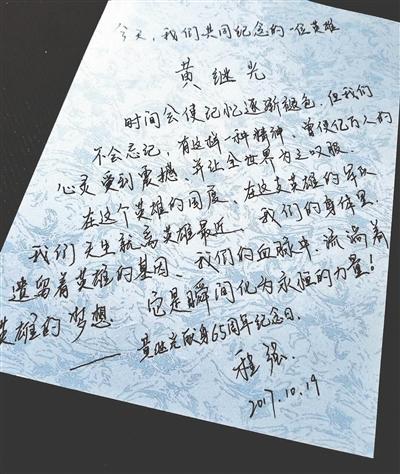 今天，我们共同纪念的一位英雄
黄继光
时间会使记忆逐渐褪色，但我们
不会忘记，有这样一种精神，曾使亿万人的
心灵受到震撼，并让全世界为之叹服。
在这个英雄的国度、在这支英雄的军队
我们天生就离英雄最近、我们的身体里
遗留着英雄的基因、我们的血脉中，流淌着
英雄的梦想. 它是瞬间化为永恒的力量！
——黄继光献身65周年纪念日.
程强.
2017.10.19